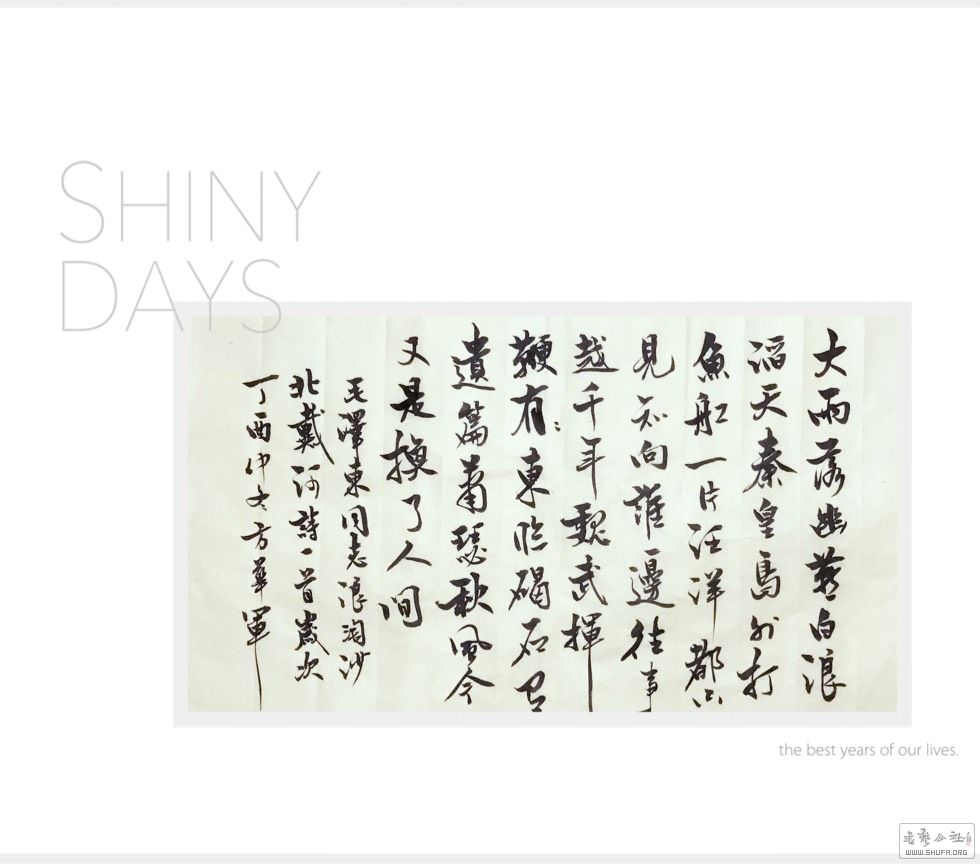 SHINY
DAYS
大雨落幽燕白浪
滔天秦皇島外打
魚舡一片汪洋都不
見知向誰邊往事
越千年魏武揮
鞭有東臨碣石有
遺篇蕭瑟秋風今
又是換了人間
毛澤東同志浪淘沙
北戴河詩一首歲次
丁酉仲冬方華軍
the best years of our lives.
書藝公社
WWW.SHUFA.ORG